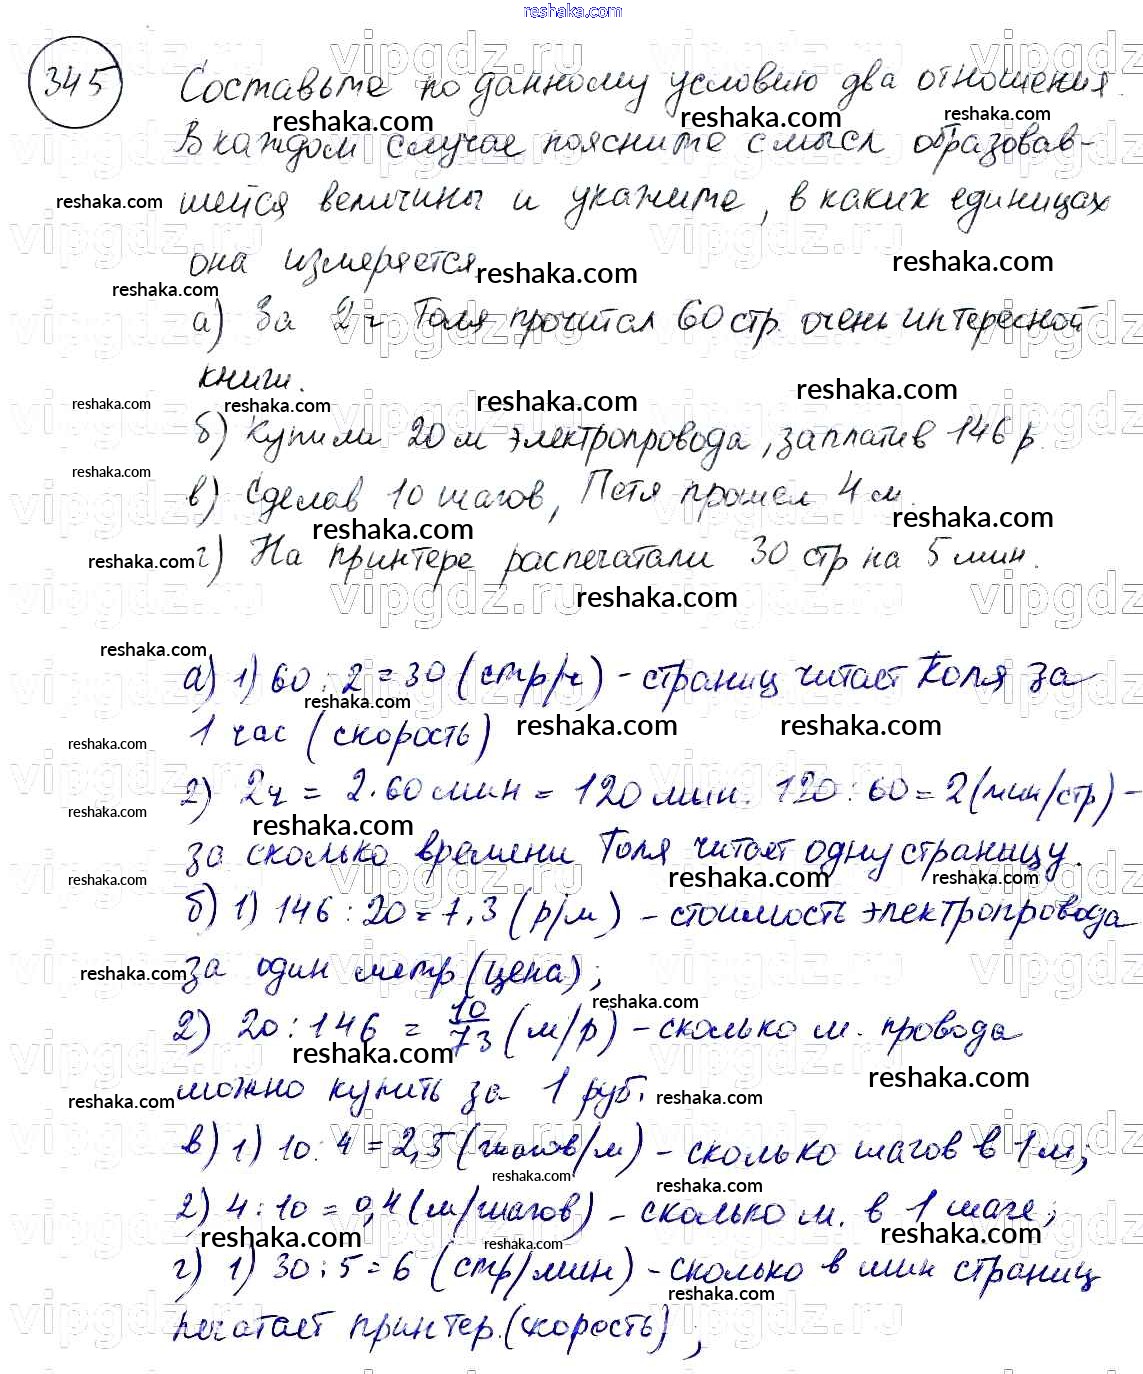 reshaka.com
345
Составьте по данному условию два отношения.
В каждом случае поясните смысл образовав-
шейся величины и укажите, в каких единицах
она измеряется
а) За 2 ч Толя прочитал 60 стр. очень интересной
книги.
б) Купили 20 м электропровода, заплатив 146 р.
в) Сделав 10 шагов, Петя прошел 4 м.
г) На принтере распечатали 30 стр на 5 мин.
а) 1) 60 : 2 = 30 (стр/ч) - страниц читает Коля за
1 час (скорость)
2) 2ч = 2·60 мин = 120 мин. 120 : 60 = 2 (мин/стр) -
за сколько времени Толя читает одну страницу.
б) 1) 146 : 20 = 7,3 (р/м) - стоимость электропровода
за один метр (цена);
2) 20 : 146 = 10/73 (м/р) - сколько м. провода
можно купить за 1 руб.
в) 1) 10 : 4 = 2,5 (шагов/м) - сколько шагов в 1 м;
2) 4 : 10 = 0,4 (м/шагов) - сколько м. в 1 шаге;
г) 1) 30 : 5 = 6 (стр/мин) - сколько в мин страниц
печатает принтер. (скорость) ;